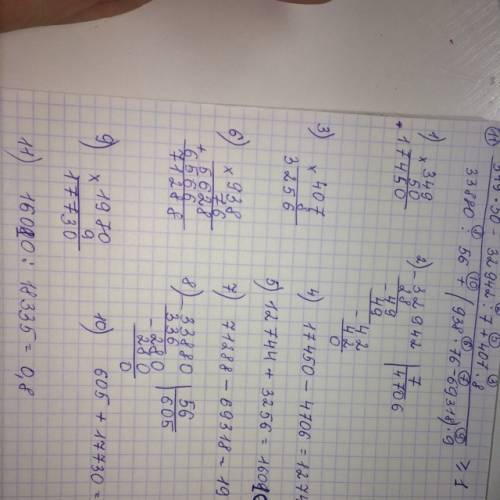 349 · 50 - 32942 : 7 + 407 · 8
33880 : 56 + (938 · 76 - 69318) · 9 ≥ 1
1) × 349
50
17450
2) - 32942 | 7
28 | 4706
- 49
49
- 42
42
0
3) × 407
8
3256
4) 17450 - 4706 = 1274
5) 12744 + 3256 = 160
6) × 938
76
+ 5628
6566
71288
7) 71288 - 69318 = 19
8) - 33880 | 56
336 | 605
- 280
280
0
9) × 1970
9
17730
10) 605 + 17730 =
11) 16000 : 18335 = 0,8